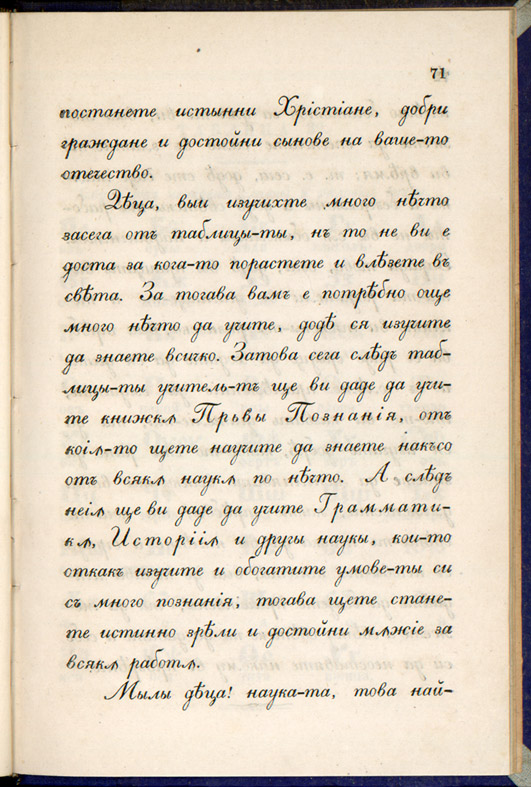 71
постанете истынни Хрістіане, добри
граждане и достойни сынове на ваше-то
отечество.
Дѣца, выи изучихте много нѣчто
засега отъ таблицы-ты, нъ то не ви е
доста за кога-то порастете и влѣзете въ
свѣта. За тогава вамъ е потрѣбно още
много нѣчто да учите, додѣ ся изучите
да знаете всичко. Затова сега слѣдъ таб-
лицы-ты учитель-тъ ще ви даде да учи-
те книжкѫ Прьвы Познанія, отъ
коіѫ-то щете научите да знаете накъсо
отъ всякѫ наукѫ по нѣчто. А слѣдъ
неіѫ ще ви даде да учите Граммати-
кѫ, Исторііѫ и другы наукы, кои-то
откакъ изучите и обогатите умове-ты си
съ много познанія, тогава щете стане-
те истинно зрѣли и достойни мѫжіе за
всякѫ работѫ.
Милы дѣца! наука-та, това най-